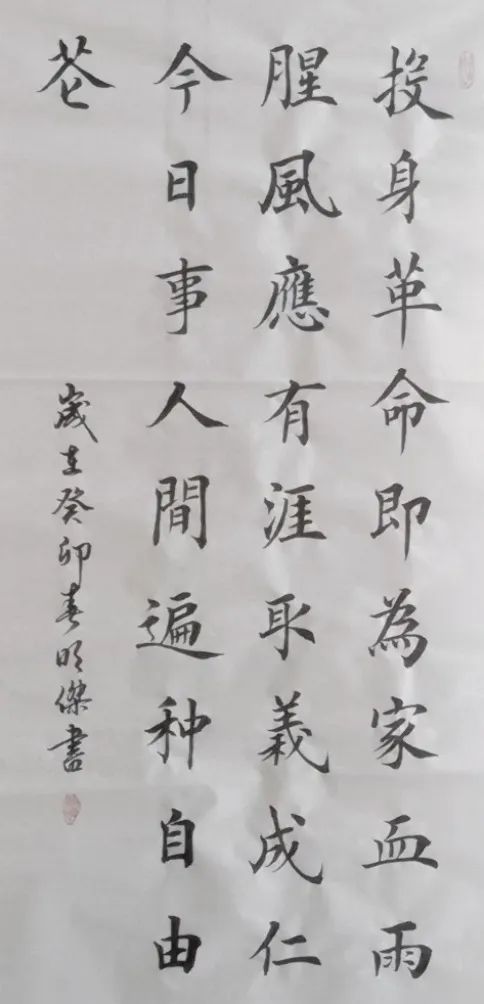 投身革命即為家血雨
腥風應有涯取義成仁
今日事人間遍种自由
花
歲在癸卯春明傑書